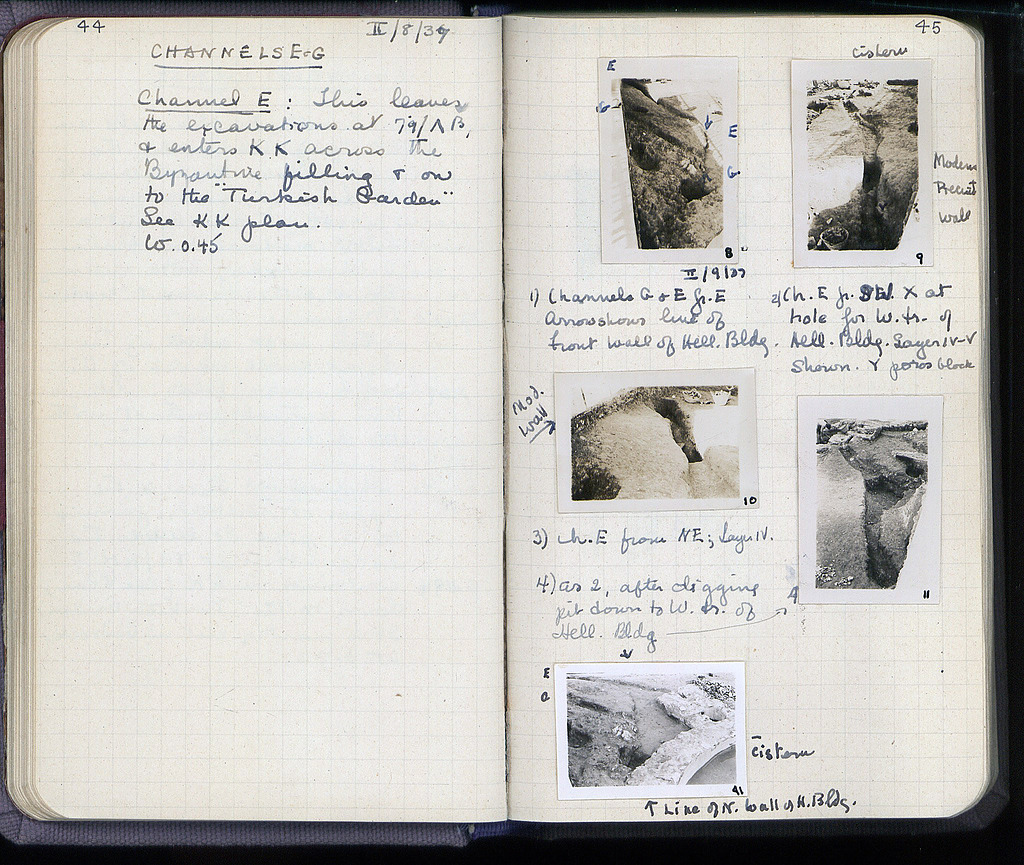 44
II/8/37
CHANNELS E-G
Channel E : This leaves
the excavations at 79/ΛB,
& enters KK across the
Byzantine filling & on
to the "Turkish Garden"
See KK plan.
W. 0.45
45
cistern
E
G
E
G
8
Modern
Precinct
wall
9
II/9/37
1) Channels G & E fr. E
Arrow shows line of
front wall of Hell. Bldg.
2) Ch. E fr. SW. X at
hole for W. tr. of
Hell. Bldg. Layer IV-V
Shown. Y poros block
Mod.
Wall
10
3) Ch. E from NE; Layer IV.
4) as 2, after digging
pit down to W. tr. of
Hell. Bldg
4
11
E
G
41
Cistern
↑ Line of N. wall of H. Bldg.